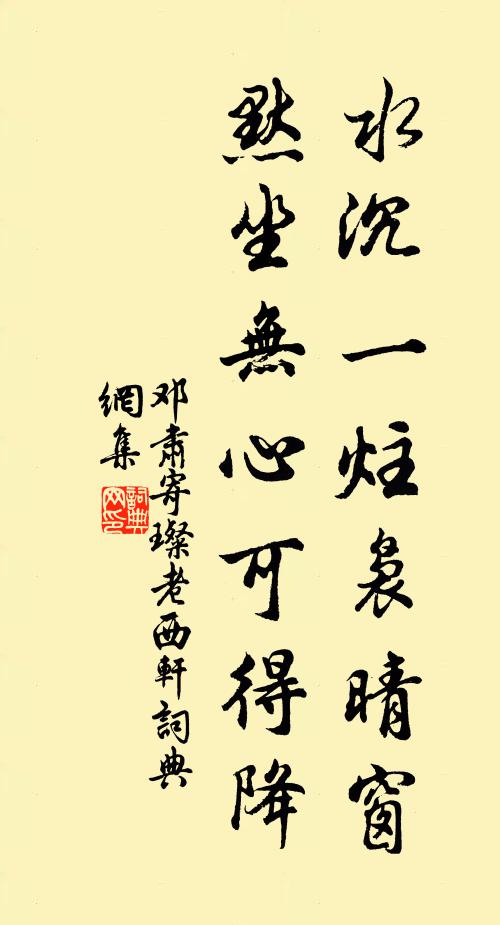 水沉一炷裊晴窗
默坐無心可得降
邓肅寄璨老西軒詞典
網集
詞典网印